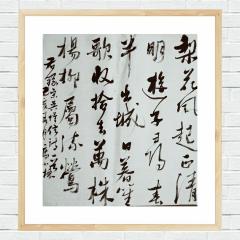 梨花风起正清
明遊子寻春
半出城日暮笙
歌收拾去萬株
楊柳屬流鶯